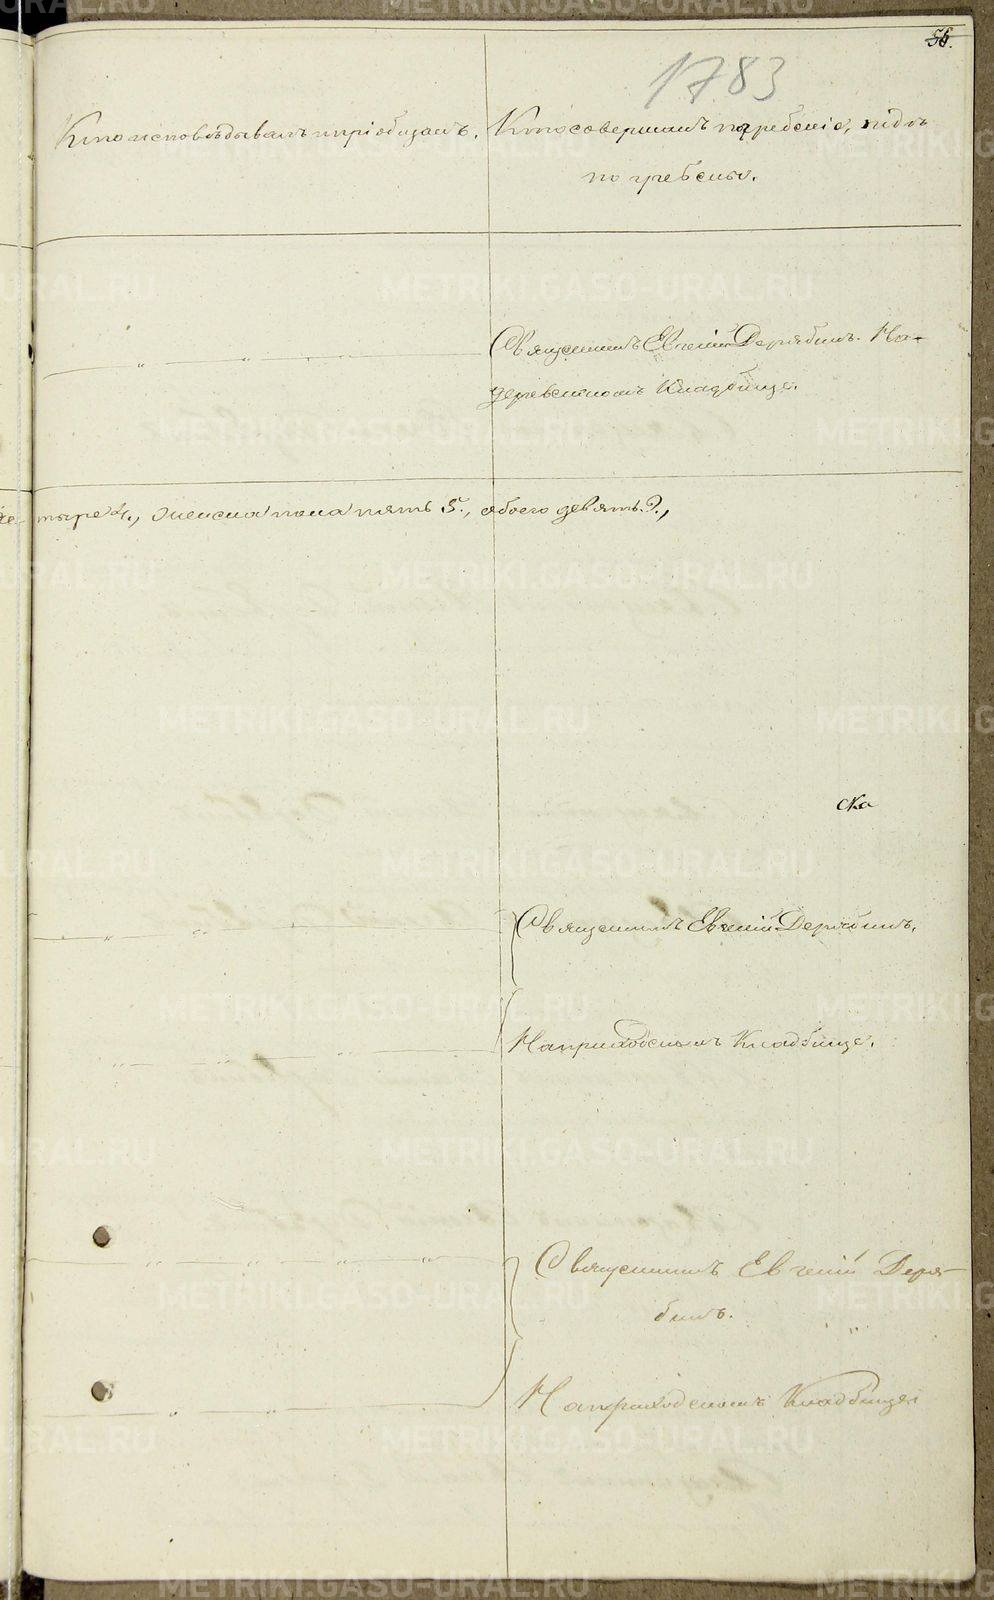 56.
1783
Кто исповѣдывалъ и пріобщалъ.
Кто совершалъ погребеніе, и гдѣ
погребены.
Священникъ Евгеній Дерябинъ. На
деревенскомъ Кладбище.
тыре 4., женска пола пять 5., обоего девять 9.,
Священникъ Евгеній Дерябинъ.
На приходскомъ Кладбище.
Священникъ Евгеній Деря-
бинъ.
На приходскомъ Кладбище.
METRIKI.GASO-URAL.RU